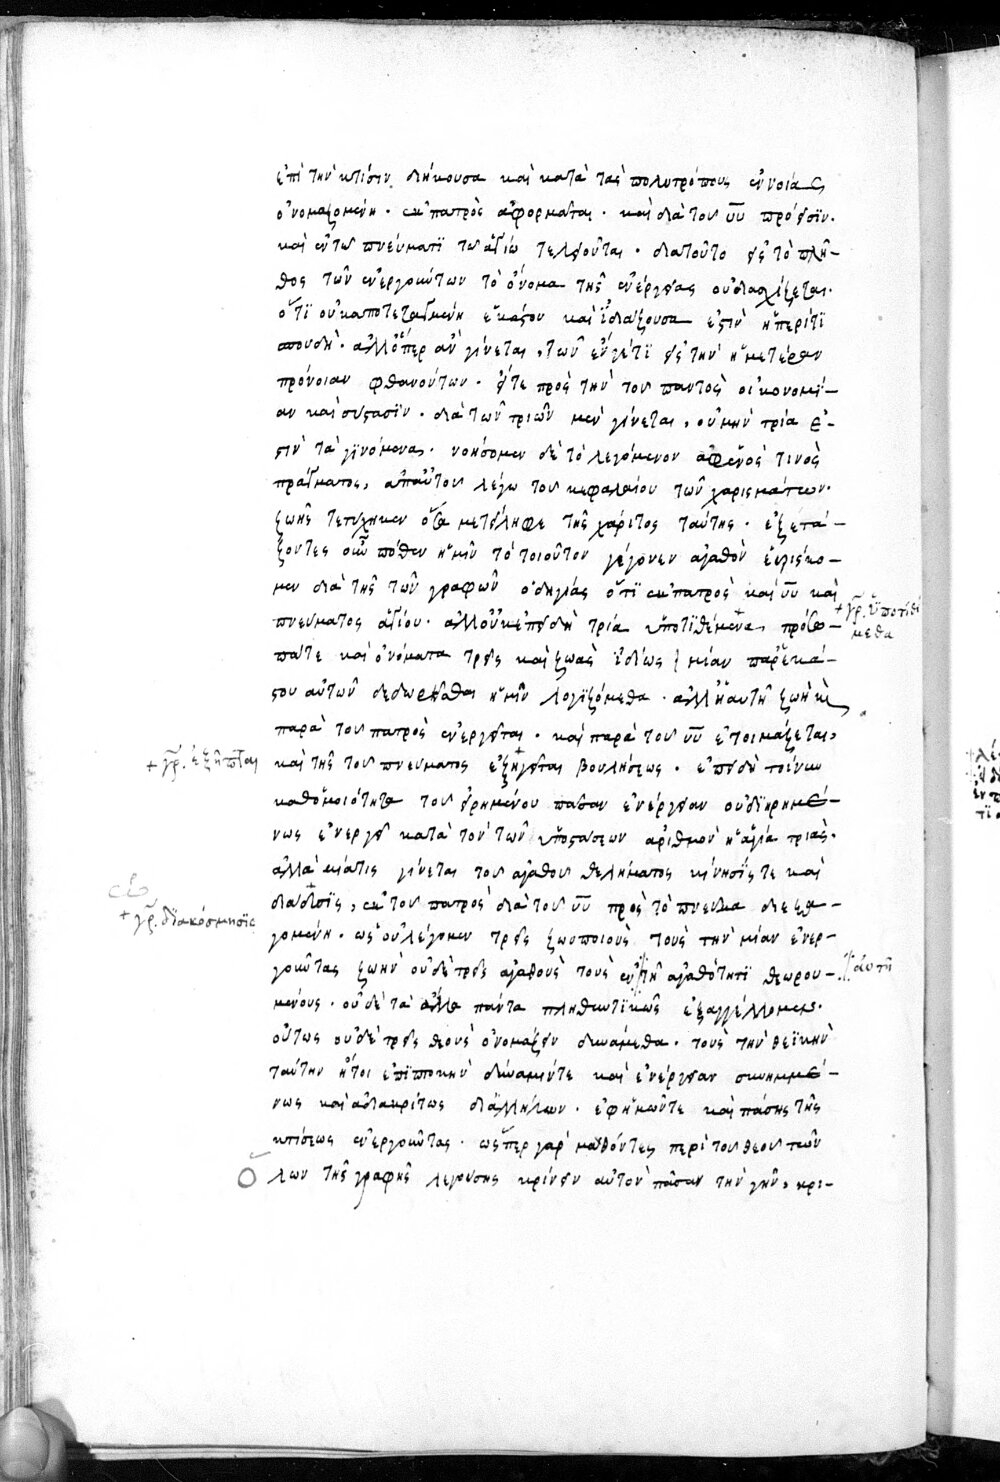 ἐπὶ τὴν κτίσιν διήκουσα καὶ κατὰ τὰς πολυτρόπους ἐννοίας
ὀνομαζομένη· ἐκ πατρὸς ἀφορμᾶται· καὶ διὰ τοῦ υυ πρόεισϊν·
καὶ ἐν τῷ πνεύματϊ τῷ ἁγίῳ τελειοῦται· διατοῦτο εἰς τὸ πλῆ–
θος τῶν ἐνεργούντων τὸ ὄνομα τῆς ἐνέργειας οὐ διασχίζεται·
ὅτϊ οὐκ ἀποτεταγμένη ἑκάστου καὶ ἰδιάζουσα ἐστὶν ἡ περίτϊ
σπουδὴ· ἀλλ' ὅπερ ἂν γίνεται, τῶν εἰς τὴν ἡμετέραν
πρόνοιαν φθανούντων· εἴτε πρὸς τὴν τοῦ παντὸς οἰκονομϊ–
αν καὶ σύστασϊν· διὰ τῶν τριῶν μὲν γίνεται, οὐ μὴν τρία ἐ–
στὶν τὰ γϊνόμενα· νοήσομεν δὲ τὸ λεγόμενον ἀφ' ἑνός τινὸς
πράγματος, ἀπ' αὐτοῦ λέγω τοῦ κεφαλαίου τῶν χαρισμάτων·
ζωῆς τετύχηκεν ὅσα μετείληφε τῆς χάριτος ταύτης· ἐξετά–
ζοντες οὖν πόθεν ἡμῖν τὸ τοιοῦτον γέγονεν ἀγαθὸν εὑρίσκο–
μεν διὰ τῆς τῶν γραφῶν ὁδηγίας ὅτϊ ἐκ πατρὸς καὶ υυ καὶ
πνεύματος ἁγίου· ἀλλ' οὐκ ἐπειδὴ τρία ὑποτϊθέμενα, πρόσω–
+ γρ. ὑποτιθέ
μεθα
πά τε καὶ ὀνόματα τρεῖς καὶ ζωὰς ἰδίως μίαν παρ' ἑκά–
στου αὐτῶν δεδωρῆσθαι ἡμῖν λογϊζόμεθα· ἀλλ' ἡ αὐτὴ ζωὴ καὶ
παρὰ τοῦ πατρὸς ἐνεργεῖται· καὶ παρὰ τοῦ υυ ἑτοιμάζεται,
+ γρ. ἐξῆπται
καὶ τῆς τοῦ πνεύματος ἐξηγεῖται βουλήσεως· ἐπειδὴ τοίνυν
καθ' ὁμοιότητα τοῦ εἰρημένου πᾶσαν ἐνέργειαν οὐ διῃρημέ–
νως ἐνεργεῖ κατὰ τὸν τῶν ὑποστάσεων ἀριθμὸν ἡ ἁγία τριὰς·
ἀλλὰ μία τις γίνεται τοῦ ἀγαθοῦ θελήματος κίνησϊς τε καὶ
διάδοσϊς, ἐκ τοῦ πατρὸς διὰ τοῦ υυ πρὸς τὸ πνεῦμα διεξα–
+ γρ. διακόσμησϊς
γομένη· ὡς οὐ λέγομεν τρεῖς ζωοποιοὺς τοὺς τὴν μίαν ἐνερ–
γοῦντας ζωὴν οὐδὲ τρεῖς ἀγαθοὺς τοὺς ἐν τῇ ἀγαθότητϊ θεωρου–
αὐτῇ
μένους· οὐδὲ τὰ ἄλλα πάντα πληθυντϊκῶς ἐξαγγέλλομεν·
οὕτως οὐδὲ τρεῖς θεοὺς ὀνομάζειν δυνάμεθα· τοὺς τὴν θεϊκὴν
ταύτην ἤτοι ἐπϊοπτικὴν δύναμίν τε καὶ ἐνέργειαν συνημμέ–
νως καὶ ἀδιακρίτως δι' ἀλλήλων· ἐφ' ἡμῶν τε καὶ πάσης τῆς
κτίσεως ἐνεργοῦντας· ὥσπερ γὰρ μαθόντες περὶ τοῦ θεοῦ τῶν
ὅλων τῆς γραφῆς λεγούσης κρίνειν αὐτὸν πᾶσαν τὴν γῆν, κρι–